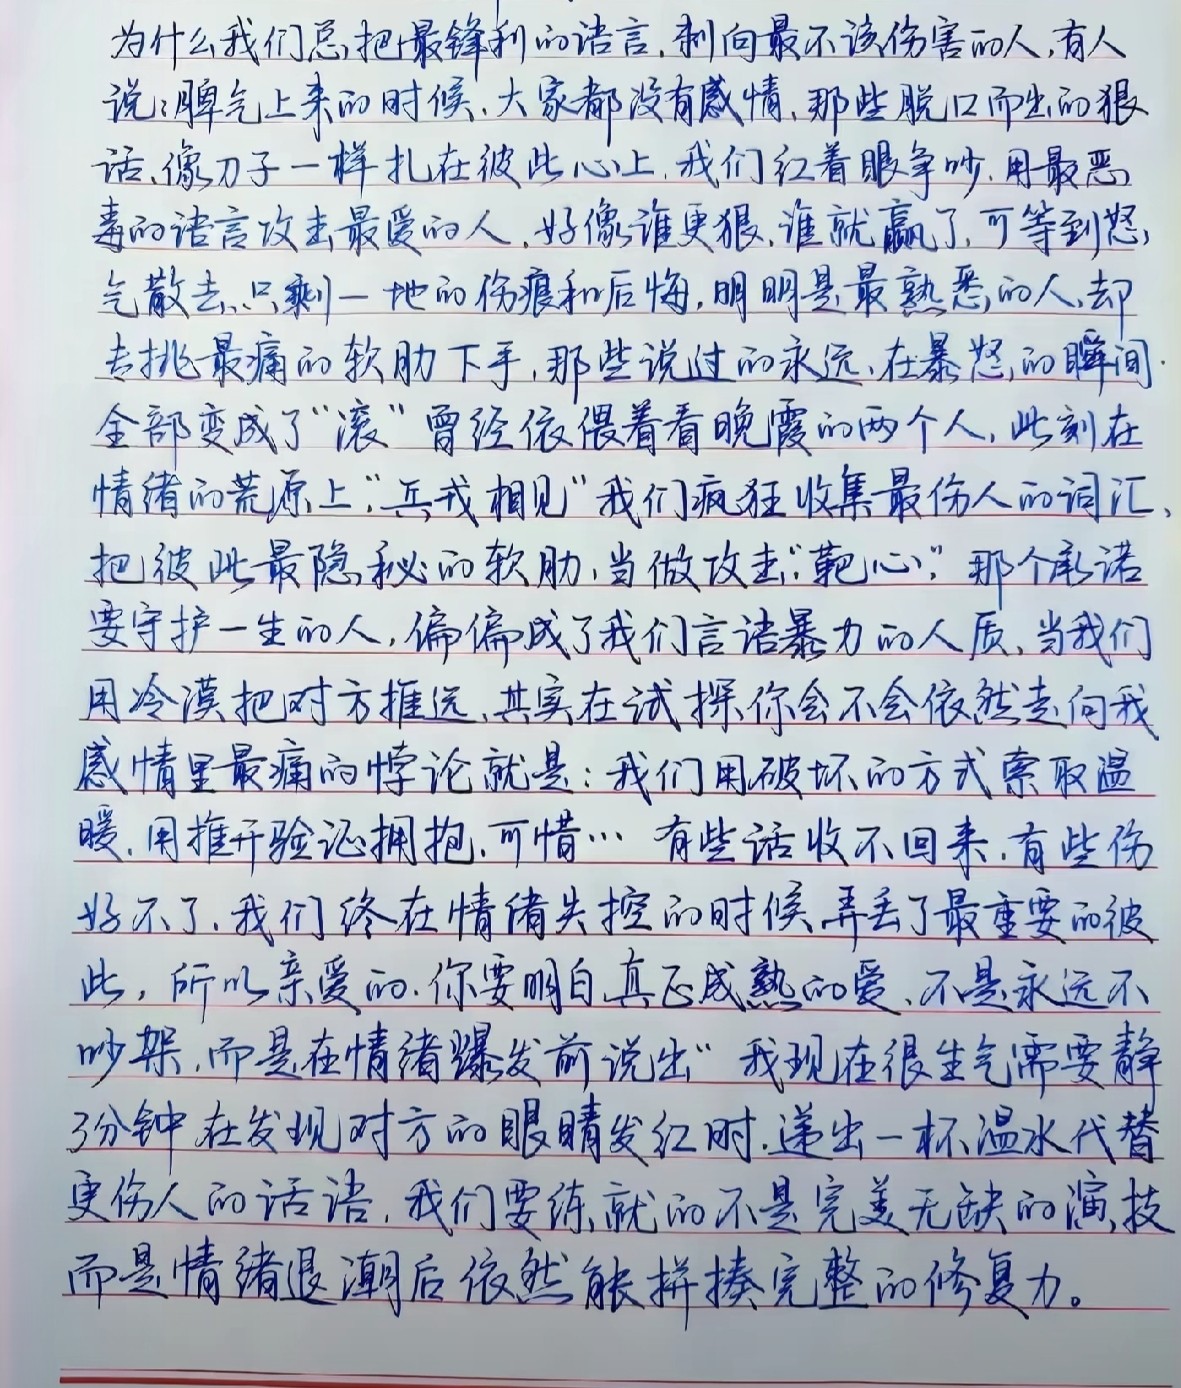 为什么我们总把最锋利的语言,刺向最不该伤害的人,有人
说:脾气上来的时候、大家都没有感情,那些脱口而出的狠
话、像刀子一样扎在彼此心上,我们红着眼争吵,用最恶
毒的语言攻击最爱的人,好像谁更狠,谁就赢了,可等到怒
气散去,只剩一地的伤痕和后悔,明明是最熟悉的人、却
专挑最痛的软肋下手,那些说过的永远、在暴怒的瞬间
全部变成了“滚”曾经依偎着看晚霞的两个人,此刻在
情绪的荒原上“兵戎相见”我们疯狂收集最伤人的词汇、
把彼此最隐秘的软肋,当做攻击“靶心”,那个承诺
要守护一生的人,偏偏成了我们言语暴力的人质、当我们
用冷漠把对方推远、其实在试探你会不会依然走向我
感情里最痛的悖论就是:我们用破坏的方式索取温
暖,用推开验证拥抱,可惜… 有些话收不回来,有些伤
好不了,我们终在情绪失控的时候弄丢了最重要的彼
此,所以亲爱的,你要明白真正成熟的爱、不是永远不
吵架,而是在情绪爆发前说出“我现在很生气需要静
3分钟,在发现对方的眼睛发红时,递出一杯温水代替
更伤人的话语,我们要练就的不是完美无缺的演技
而是情绪退潮后依然能拼揍完整的修复力。